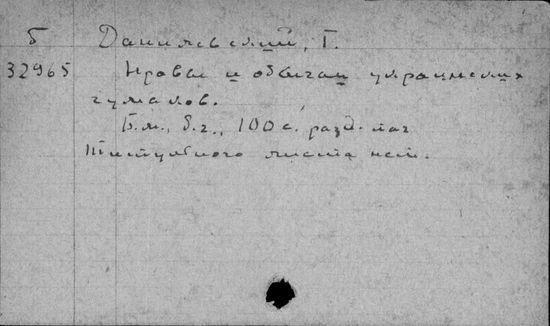 Б Данилевский, Г.
32965 Нравы и обычаи украинских
чумаков.
Б.м., б.г., 100 с. разд. паг
Титульного листа нет.